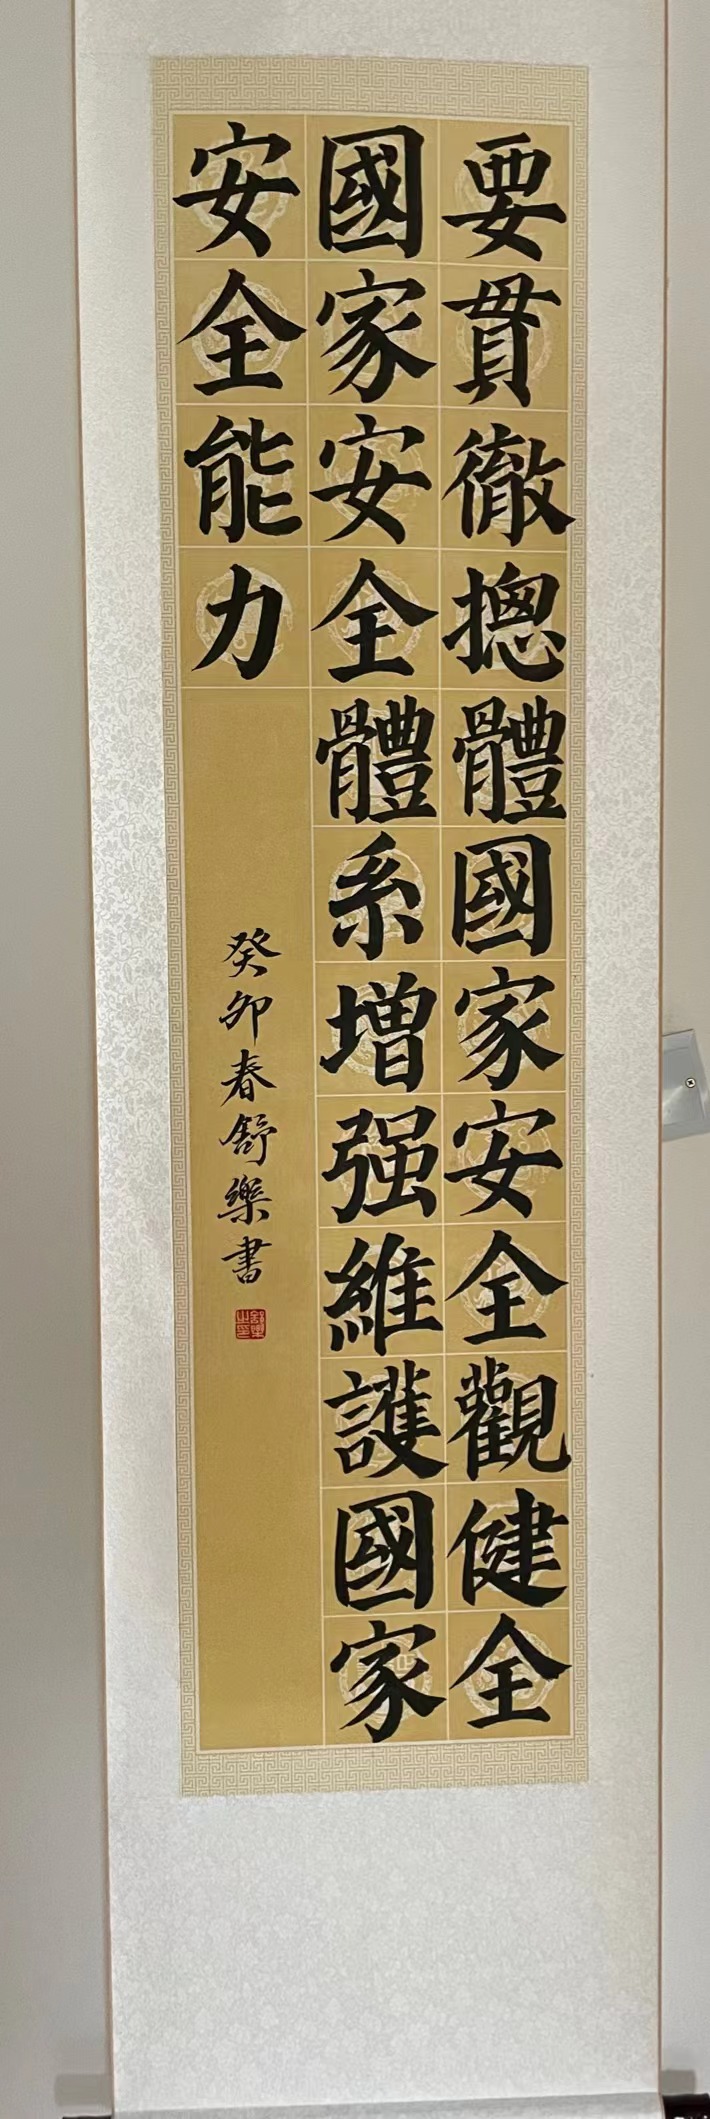 要貫徹摠體國家安全觀健全
國家安全體系增强維護國家
安全能力
癸卯春舒樂書